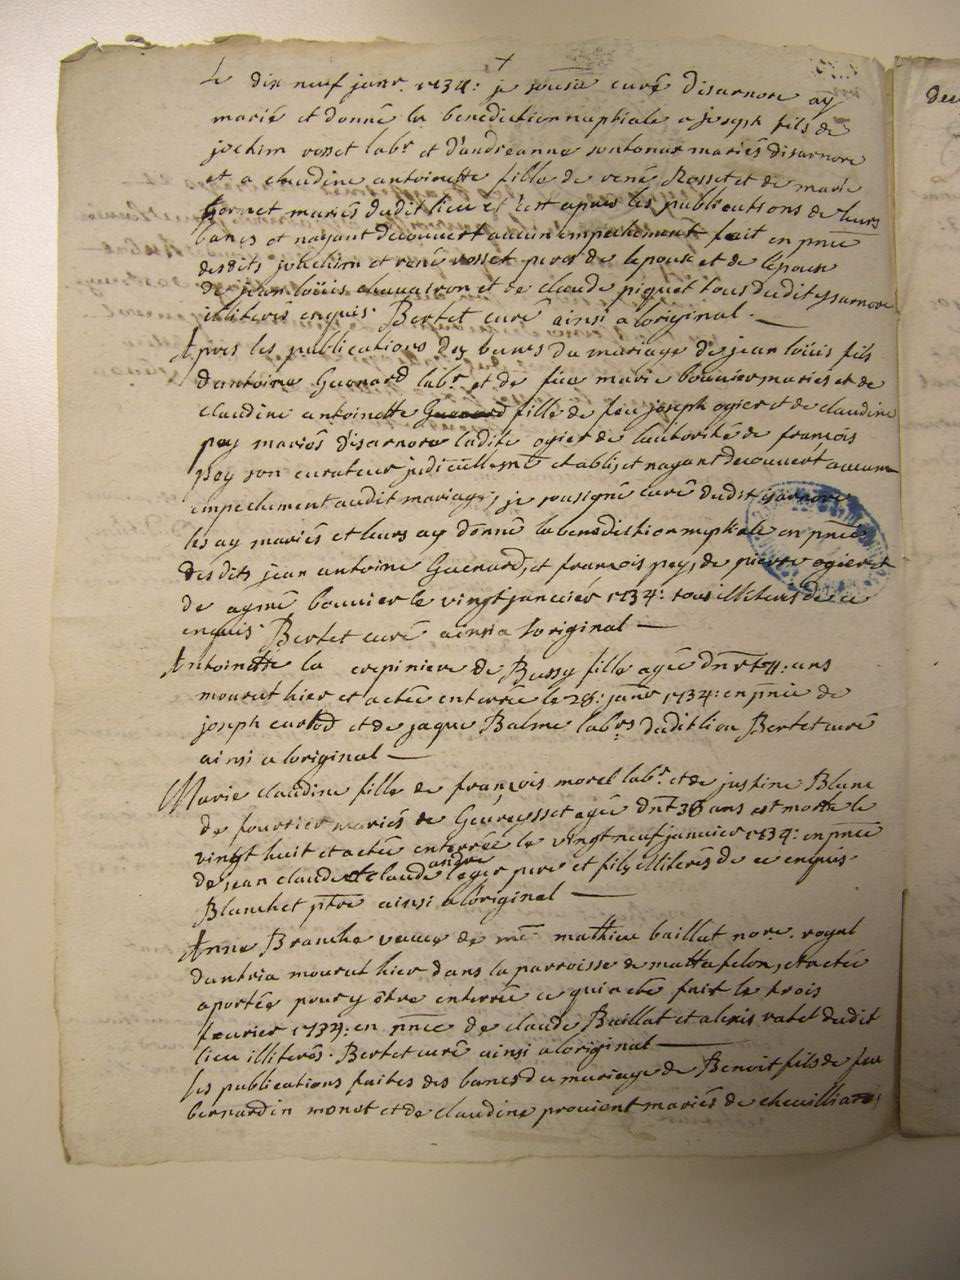 +
Le dix neuf janr. 1734: je sousié curé disarnore ay
marié et donné la benediction nuptiale a joseph fils de
jochim rosset labr et d'andréanne mariés disarnore
et a claudine antoinette fille de rené Rosset et de marie
gornet mariés dudit lieu et c'est apres les publications de leurs
bancs et nayant decouvert aucun empechement fait en pnce
desdits jochim et rené rosset peres de lepoux et de lepouse
de jean loüis chavasson et de claude piquet tous dudit ysarnore
illiterés enquis. Bertet curé ainsi a loriginal.
Apres les publications des bancs du mariage de jean loüis fils
dantoine Guenard labr. et de feue marie bouvier mariés et de
claudine antoinette fille de feu joseph ogier et de claudine
pey mariés disarnore ladite ogier de lautorité de françois
pey son curateur judiciellemt etabli, et nayant decouvert aucun
empechement audit mariage, je sousigné curé dudit isarnore
les ay mariés et leurs ay donné la benediction nuptiale en pnce
desdits jean antoine Guenard, et françois pey, de pierre ogier et
de aymé bouvier le vingt janvier 1734: tous illiterés de ce
enquis. Bertet curé ainsi a loriginal
Antoinette la crepiniere de Bussy fille agée dnrt ans
mourut hier et a été enterrée le 28: janvr 1734: en pnce de
joseph curtod et de jaque Balme labrs dudit lieu Bertet curé
ainsi a loriginal
Marie claudine fille de françois morel labr. et de justine Blanc
de fourtier mariés de Geureysset agée dnt 38 ans est morte le
vingt huit et a été enterrée le vingt neuf janvier 1734: en pnce
de jean claude et claude andre leger pere et fils illiterés de ce enquis
Blanchet ptre ainsi a loriginal
Anne Branche veuve de me mathieu baillat nore. royal
dantria mourut hier dans la parroisse de mattafelon, et a été
aportée pour y être enterrée ce qui a été fait le trois
feuvrier 1734: en pnce de claude Baillat et alexis ratet dudit
lieu illiterés. Bertet curé ainsi a loriginal
les publications faites des bancs du mariage de Benoit fils de feu
bernardin monet et de claudine mariés de cheuillia